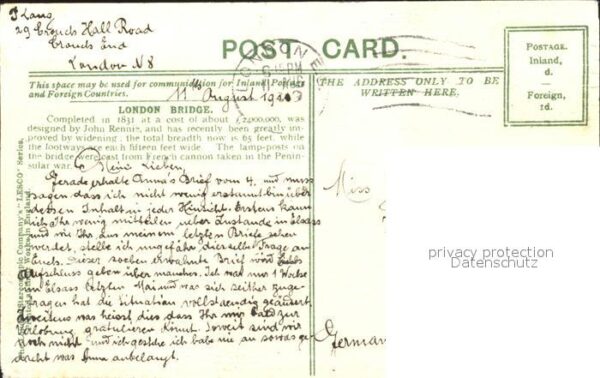 J Lang
29 Crouch Hall Road
Crouch End
London N8
POST CARD.
POSTAGE.
Inland,
d.
Foreign,
1d.
This space may be used for communication for Inland Postage
and Foreign Countries.
THE ADDRESS ONLY TO BE
WRITTEN HERE.
11 August
LONDON BRIDGE.
Completed in 1831 at a cost of about £2,400,000, was
designed by John Rennie, and has recently been greatly im-
proved by widening; the total breadth now is 65 feet, while
the footways are each fifteen feet wide. The lamp-posts on
the bridge were cast from French cannon taken in the Penin-
sular war.
Meine Lieben,
Gerade erhalte Anna's Brief vom 4. und muss
sagen dass ich nicht wenig erstaunt bin über
dessen Inhalt in jeder Hinsicht. Erstens kann
ich Ihr wenig mitteilen ueber Zustande in Elsass
und wie Ihr aus meinem letzten Briefe sehen
werdet, stelle ich ungefähr dieselbe Frage an
Euch. Dieser soeben erwähnte Brief wird
Aufschluss geben über manches. Ich war nur 1 Woche
im Elsass letzten Mai und was sich seither zuge-
tragen hat die Situation vollstaendig geändert.
Zweitens was heisst dies dass Ihr mir bald zur
Verlobung gratulieren könnt. Soweit sind wir
noch nicht und ich gestehe ich habe nie an sowas ge-
dacht was Anna anbelangt.
Miss
Germany
"LESCO" Series.
privacy protection
Datenschutz